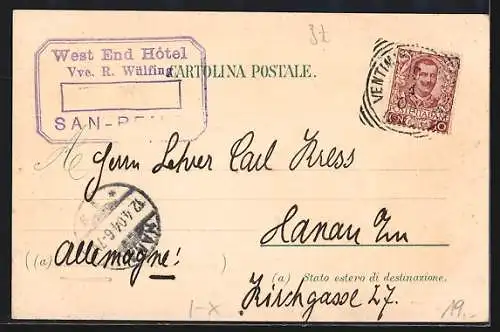 3z
West End Hôtel
Vve. R. Wülfing
SAN-RE
CARTOLINA POSTALE.
VENTIM
10
Herrn Lehrer Carl Kress
12.4.04.6-7
HANAU
Hanau
(a) Allemagne! )
(a) Stato estero di destinazione.
Kirchgasse 27.
I-X
19.-